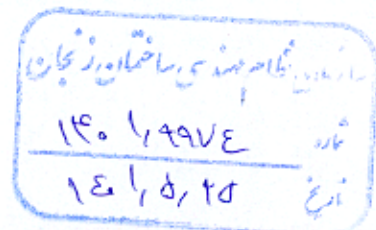 سازمان نظام مهندسی ساختمان زنجان
شماره ۱۴۰۱,۹۹۷۴
تاریخ ۱۴۰۱,۵,۲۵